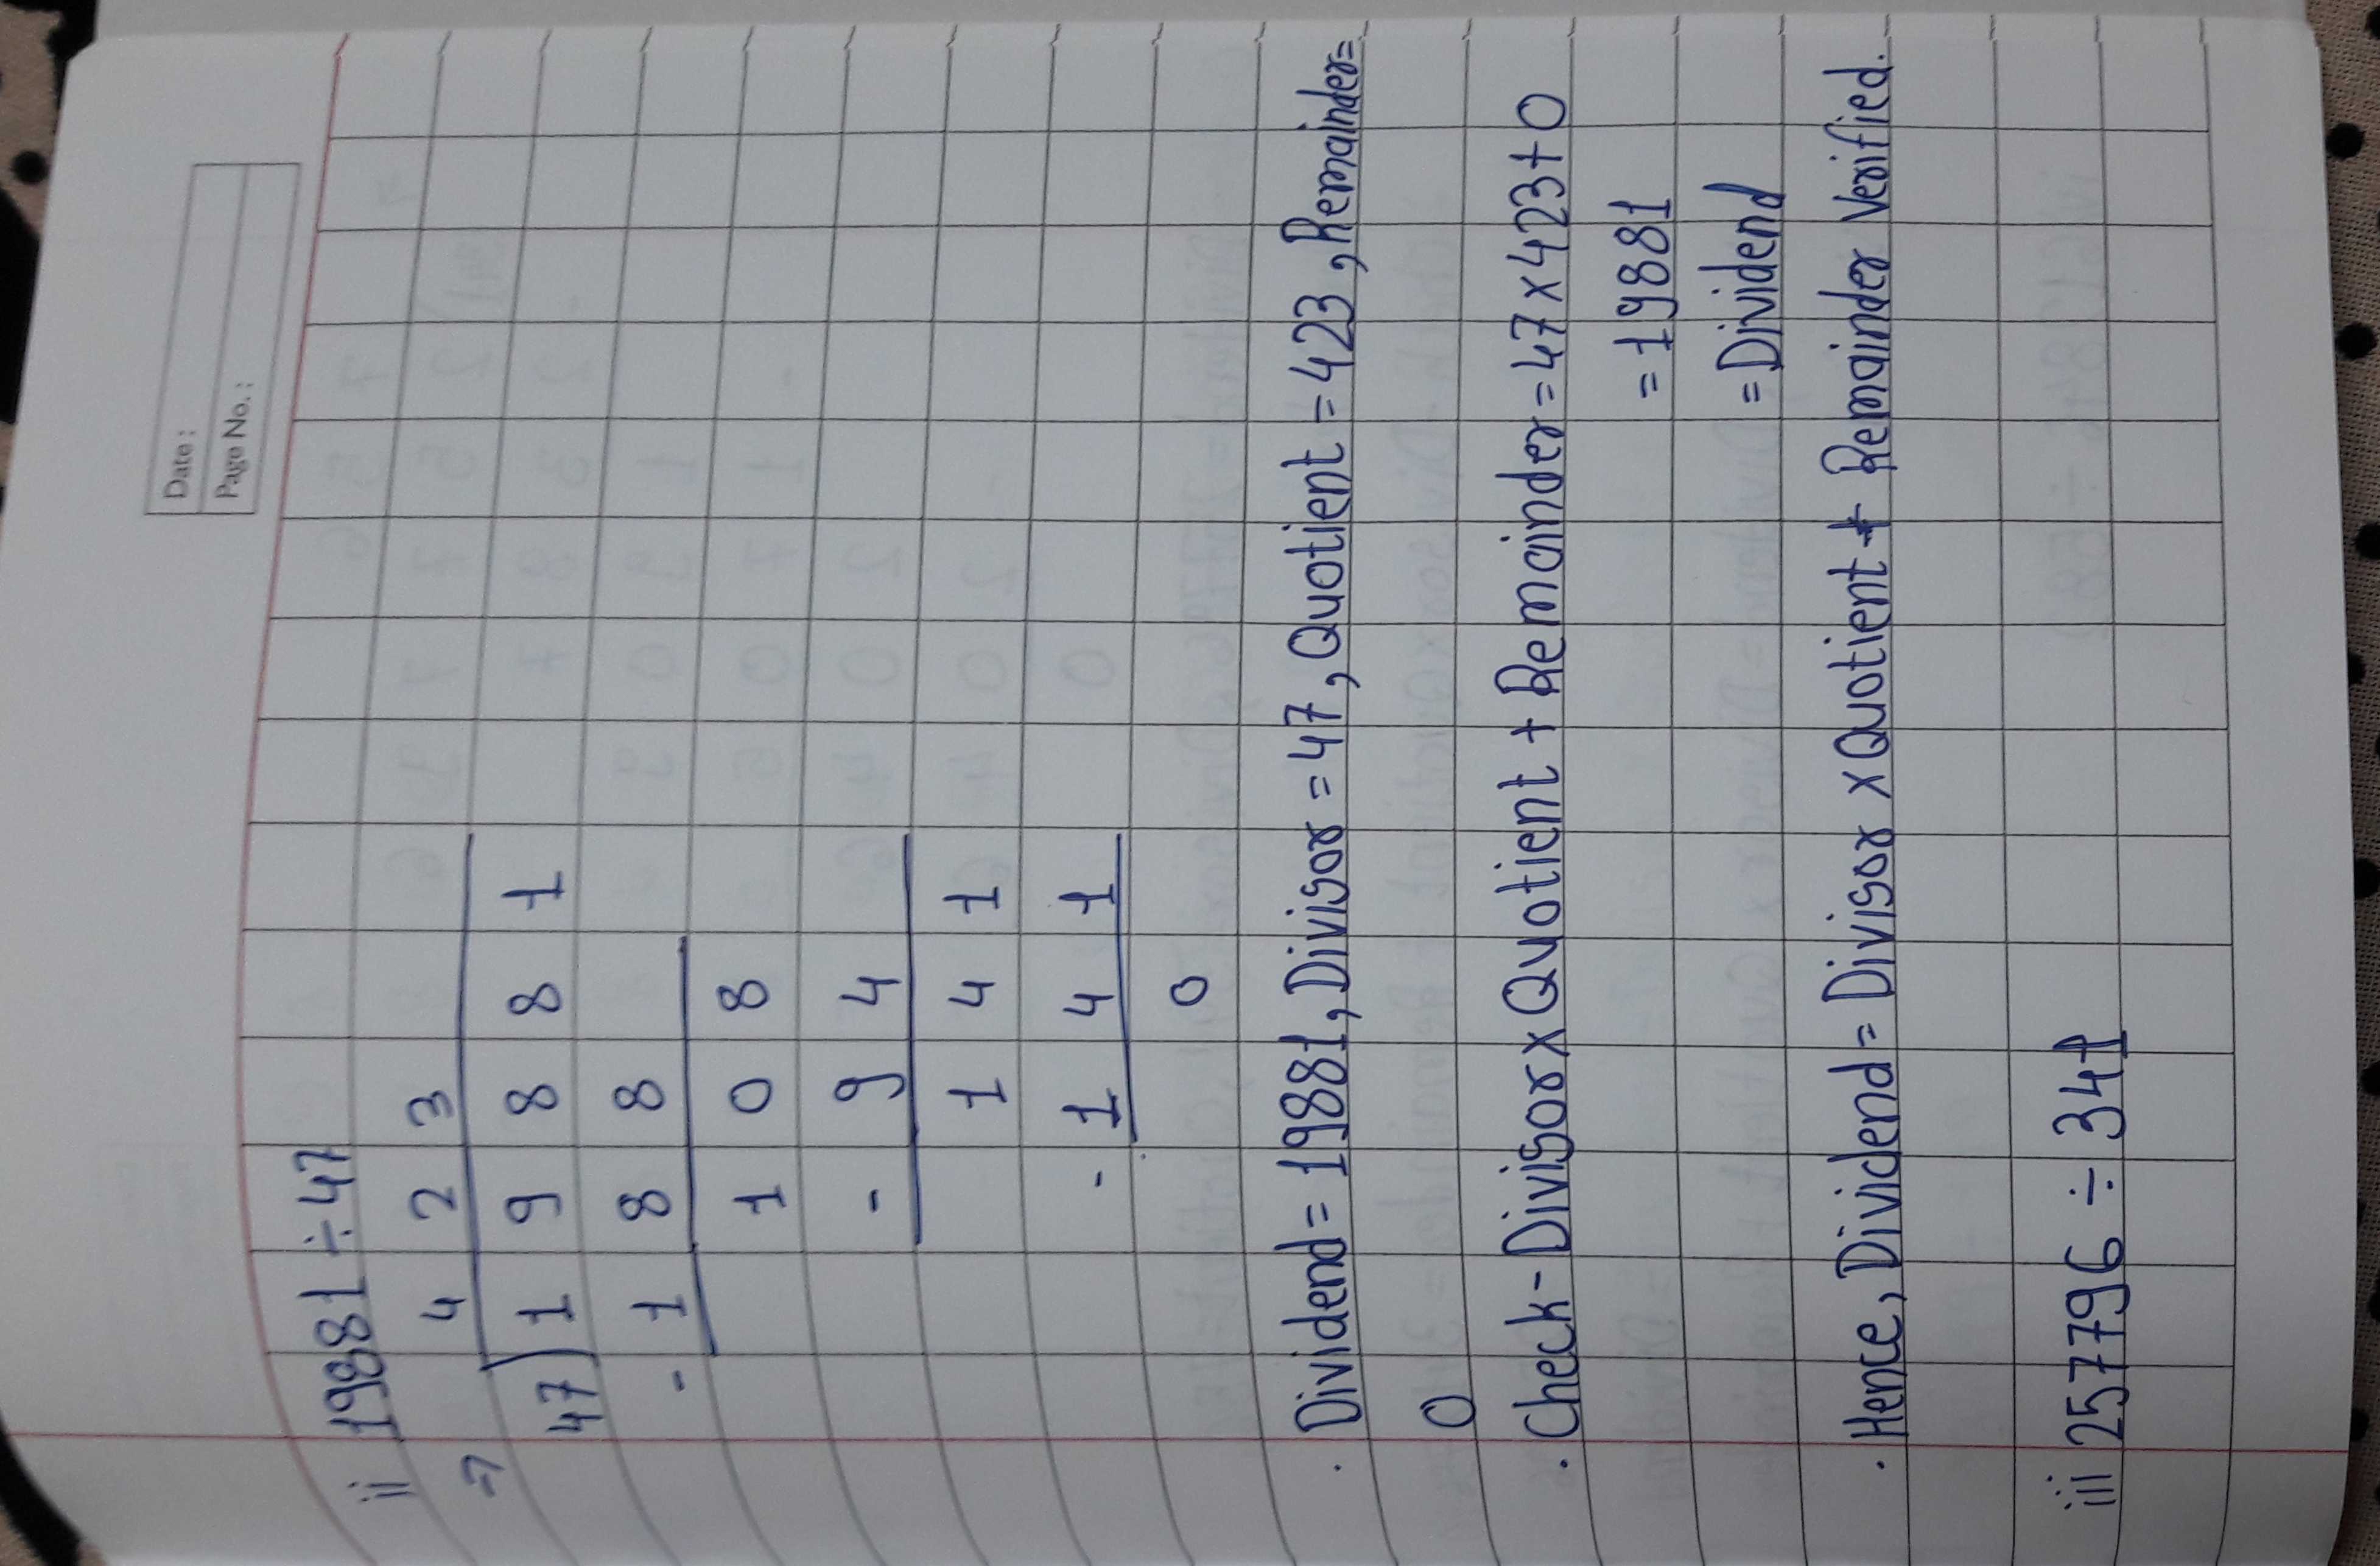 Date :
Page No. :
ii 19881 ÷ 47
⇒ 4 2 3
47 ) 1 9 8 8 1
- 1 8 8
1 0 8
- 9 4
1 4 1
- 1 4 1
0
. Dividend = 19881, Divisor = 47, Quotient = 423, Remainder =
0
. Check - Divisor x Quotient + Remainder = 47 x 423 + 0
= 19881
= Dividend
. Hence, Dividend = Divisor x Quotient + Remainder Verified.
iii 257796 ÷ 341